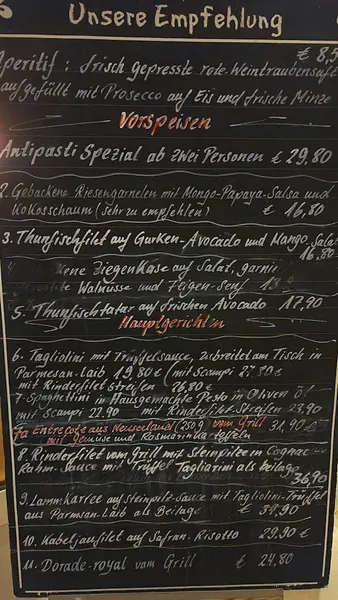 Unsere Empfehlung
€ 8,5
Aperitif : frisch gepresste rote Weintraubensaft
aufgefüllt mit Prosecco auf Eis und frische Minze
Vorspeisen
Antipasti Spezial ab zwei Personen € 29,80
2. Gebackene Riesengarnelen mit Mongo-Papaya-Salsa und
Kokosschaum (sehr zu empfehlen) € 16,80
3. Thunfischfilet auf Gurken-Avocado und Mango Salat
16.80
Ziegenkäse auf Salat, garnie
Walnüsse und Feigen-Senf
5. Thunfischtatar auf frischen Avocado 17,90
Hauptgerichten
6. Tagliolini mit Trüffelsauce, zubereitet am Tisch in
Parmesan-Laib 19,80 € (mit Scampi
mit Rinderfilet streifen 26,80 €
7. Spaghettini in Hausgemachte Pesto in Oliven Öl
mit Scampi 22.90 mit Rinderfilet-Streifen 23,90
7a Entrecote aus Neuseeland (250g) vom Grill 31,90 €
mit Gemüse und Rosmarinkartoffeln
8. Rinderfilet vom Grill mit Steinpilze in Cognac
Rahm-Sauce mit Trüffel Tagliarini als beilage
36,90
9. Lammkarree auf Steinpilz-Sauce mit Tagliolini-Trüffel
aus Parmesan-Laib als Beilage € 38,90
10. Kabeljaufilet auf Safran-Risotto 29,90 €
11. Dorade-royal vom Grill € 24.80